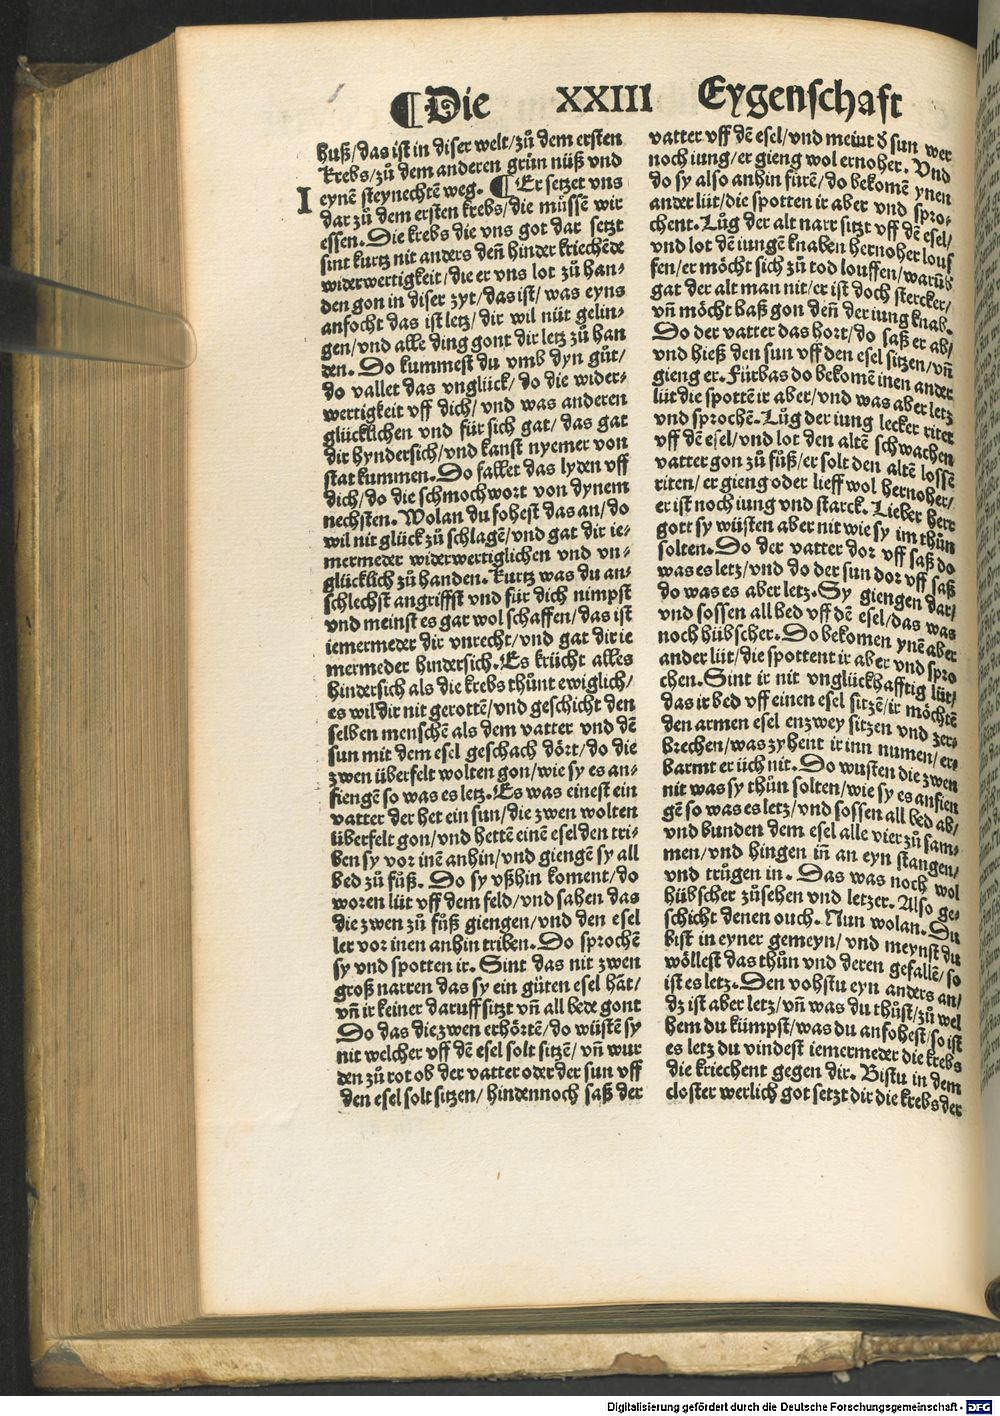 ¶Die XXIII Eygenschaft
huß/das ist in diser welt/zů dem ersten
krebs/zů dem anderen grün nüß vnd
eynē steynechtē weg. ¶ Er setzet vns
I
dar zů dem ersten krebs/die müssē wir
essen. Die krebs die vns got dar setzt
sint kurtz nit anders deñ hinder kriechēde
widerwertigkeit/die er vns lot zů han-
den gon in diser zyt/das ist/was eyns
anfocht das ist letz/dir wil nüt gelin-
gen/vnd alle ding gont dir letz zů han
den. So kummest du vmb dyn gůt/
do vallet das vnglück/do die wider-
wertigkeit vff dich/vnd was anderen
glücklichen vnd für sich gat/das gat
dir hyndersich/vnd kanst nyemer von
stat kummen. So fallet das lyden vff
dich/do die schmochwort von dynem
nechsten. Wolan du fohest das an/do
wil nit glück zů schlagē/vnd gat dir ie-
mermeder widerwertiglichen vnd vn-
glücklich zů handen. Kurtz was du an-
schlechst angriffst vnd für dich nimpst
vnd meinst es gar wol schaffen/das ist
iemermeder dir vnrecht/vnd gat dir ie
mermeder hindersich. Es krücht alles
hindersich als die krebs thůnt ewiglich/
es wil dir nit gerottē/vnd geschicht den
selben menschē als dem vatter vnd dē
sun mit dem esel geschach dört/do die
zwen überfelt wolten gon/wie sy es an-
fiengē so was es letz. Es was einest ein
vatter der het ein sun/die zwen wolten
überfelt gon/vnd hettē einē esel den tri-
ben sy vor inē anhin/vnd giengē sy all
bed zů fůß. Do sy vßhin koment/do
woren lüt vff dem feld/vnd sahen das
die zwen zů fůß giengen/vnd den esel
ler vor inen anhin triben. Do sprochē
sy vnd spotten ir. Sint das nit zwen
groß narren das sy ein gůten esel hāt/
vñ ir keiner daruff sitzt vñ all bede gont
Do das die zwen erhörtē/do wüstē sy
nit welcher vff dē esel solt sitzē/vñ wur
den zů rot ob der vatter oder der sun vff
den esel solt sitzen/hindennoch saß der
vatter vff dē esel/vnd meint ð sun wer
noch iung/er gieng wol ernoher. Vnd
do sy also anhin fůrē/do bekomē ynen
ander lüt/die spotten ir aber vnd spro-
chent. Lůg der alt narr sitzt vff dē esel/
vnd lot dē iungē knaben hernoher louf
fen/er möcht sich zů tod louffen/warūb
gat der alt man nit/er ist doch stercker/
vñ möcht baß gon deñ der iung knab.
Do der vatter das hort/do saß er ab/
vnd hieß den sun vff den esel sitzen/vñ
gieng er. Fürbas do bekomē inen ander
lüt die spottē ir aber/vnd was aber letz
vnd sprochē. Lůg der iung lecker ritet
vff dē esel/vnd lot den altē schwachen
vatter gon zů fůß/er solt den altē lossē
riten/er gieng oder lieff wol hernoher/
er ist noch iung vnd starck. Lieber herr
gott sy wüsten aber nit wie sy im thůn
solten. Do der vatter dor vff saß do
was es letz/vnd do der sun dor vff saß
do was es aber letz. Sy giengen dar/
vnd sossen all bed vff dē esel/das was
noch hübscher. Do bekomen ynē aber
ander lüt/die spottent ir aber vnd spro
chen. Sint ir nit vnglückhafftig lüt/
das ir bed vff einen esel sitzē/ir möchtē
den armen esel enzwey sitzen vnd zer-
brechen/was zyhent ir inn numen/er-
barmt er üch nit. Do wusten die zwen
nit was sy thůn solten/wie sy es anfien
gē so was es letz/vnd sossen all bed ab/
vnd bunden dem esel alle vier zů sam-
men/vnd hingen iñ an eyn stangen/
vnd trůgen in. Das was noch wol
hübscher zůsehen vnd letzer. Also ge-
schicht denen ouch. Nun wolan. Du
bist in eyner gemeyn/vnd meynst du
wöllest das thůn vnd deren gefallē/so
ist es letz. Den vohstu eyn anders an/
dz ist aber letz/vñ was du thůst/zů wel
hem du kümpst/was du anfohest/so ist
es letz du vindest iemermeder die krebs
die kriechent gegen dir. Bistu in dem
closter werlich got setzt dir die krebs der
Digitalisierung gefördert durch die Deutsche Forschungsgemeinschaft - DFG